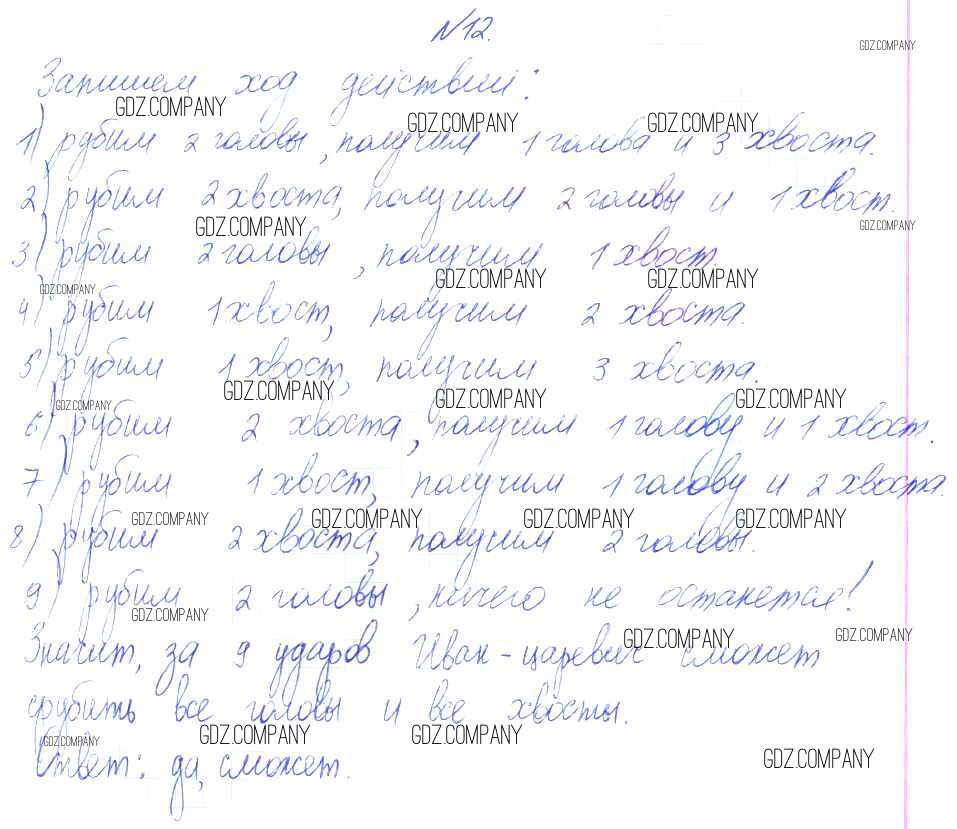 №12.
GDZ.COMPANY
Запишем ход действий:
GDZ.COMPANY
GDZ.COMPANY GDZ.COMPANY
1) рубим 2 головы, получим 1 голова и 3 хвоста.
2) рубим 2 хвоста, получим 2 головы и 1 хвост.
GDZ.COMPANY GDZ.COMPANY
3) рубим 2 головы, получим 1 хвост.
GDZ.COMPANY GDZ.COMPANY GDZ.COMPANY
4) рубим 1 хвост, получим 2 хвоста.
5) рубим 1 хвост, получим 3 хвоста.
GDZ.COMPANY GDZ.COMPANY GDZ.COMPANY GDZ.COMPANY
6) рубим 2 хвоста, получим 1 голову и 1 хвост.
7) рубим 1 хвост, получим 1 голову и 2 хвоста.
GDZ.COMPANY GDZ.COMPANY GDZ.COMPANY GDZ.COMPANY
8) рубим 2 хвоста, получим 2 головы.
9) рубим 2 головы, ничего не останется!
GDZ.COMPANY GDZ.COMPANY GDZ.COMPANY
Значит, за 9 ударов Иван-царевич сможет
срубить все головы и все хвосты.
GDZ.COMPANY GDZ.COMPANY GDZ.COMPANY GDZ.COMPANY
Ответ: да, сможет.